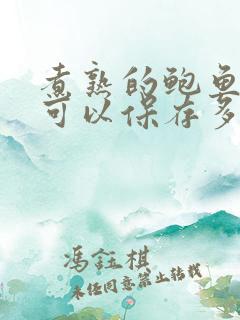 煮熟的鲍鱼
可以保存多
冯钰棋
未经同意禁止转载